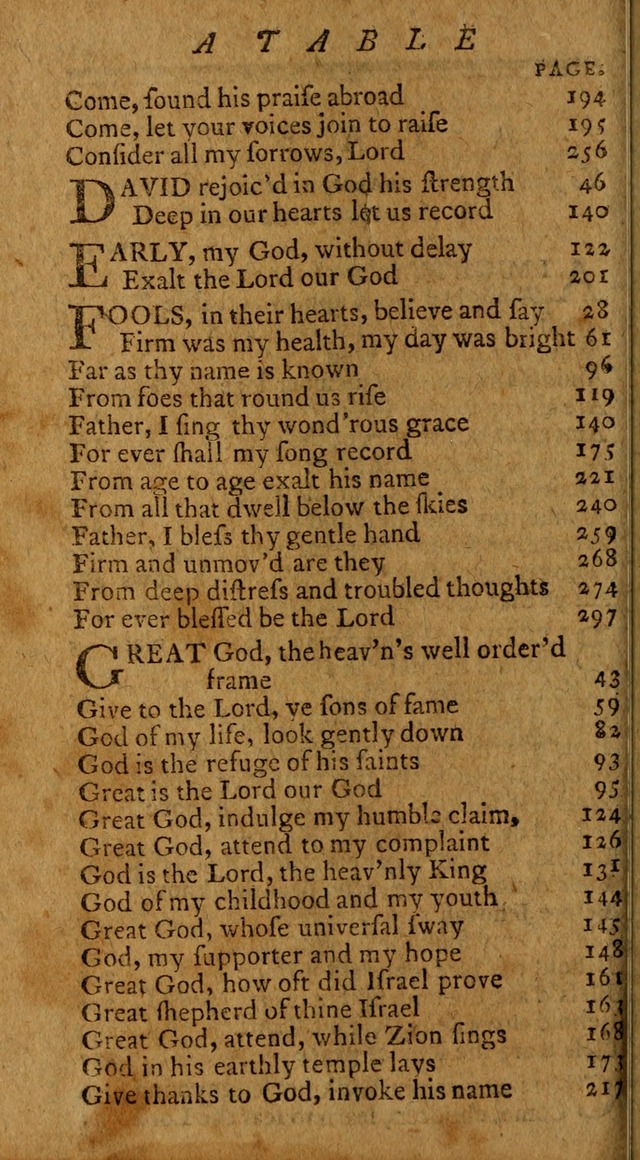 A TABLE
PAGE.
Come, ſound his praiſe abroad 194
Come, let your voices join to raiſe 195
Conſider all my ſorrows, Lord 256
DAVID rejoic'd in God his ſtrength 46
Deep in our hearts let us record 140
EARLY, my God, without delay 122
Exalt the Lord our God 201
FOOLS, in their hearts, believe and ſay 28
Firm was my health, my day was bright 61
Far as thy name is known 96
From foes that round us riſe 119
Father, I ſing thy wond'rous grace 140
For ever ſhall my ſong record 175
From age to age exalt his name 221
From all that dwell below the ſkies 240
Father, I bleſs thy gentle hand 259
Firm and unmov'd are they 268
From deep diſtreſs and troubled thoughts 274
For ever bleſſed be the Lord 297
GREAT God, the heav'n's well order'd
frame 43
Give to the Lord, ye ſons of fame 59
God of my life, look gently down 82
God is the refuge of his ſaints 93
Great is the Lord our God 95
Great God, indulge my humble claim, 124
Great God, attend to my complaint 126
God is the Lord, the heav'nly King 131
God of my childhood and my youth 144
Great God, whoſe univerſal ſway 145
God, my ſupporter and my hope 148
Great God, how oft did Iſrael prove 161
Great ſhepherd of thine Iſrael 163
Great God, attend, while Zion ſings 168
God in his earthly temple lays 173
Give thanks to God, invoke his name 217